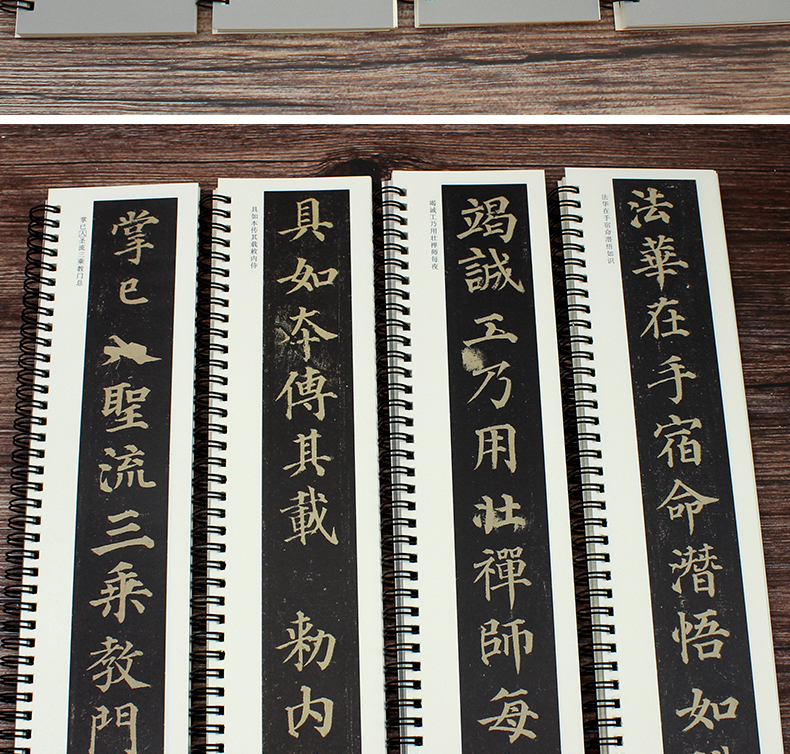 掌已[入]圣流三乘教门总
掌已入聖流三乘教門
具如本传其载敕内侍
具如本傳其載 勑内
竭诚工乃用壮禅师每夜
竭誠工乃用壯禪師每
法华在手宿命潜悟如识
法華在手宿命潛悟如